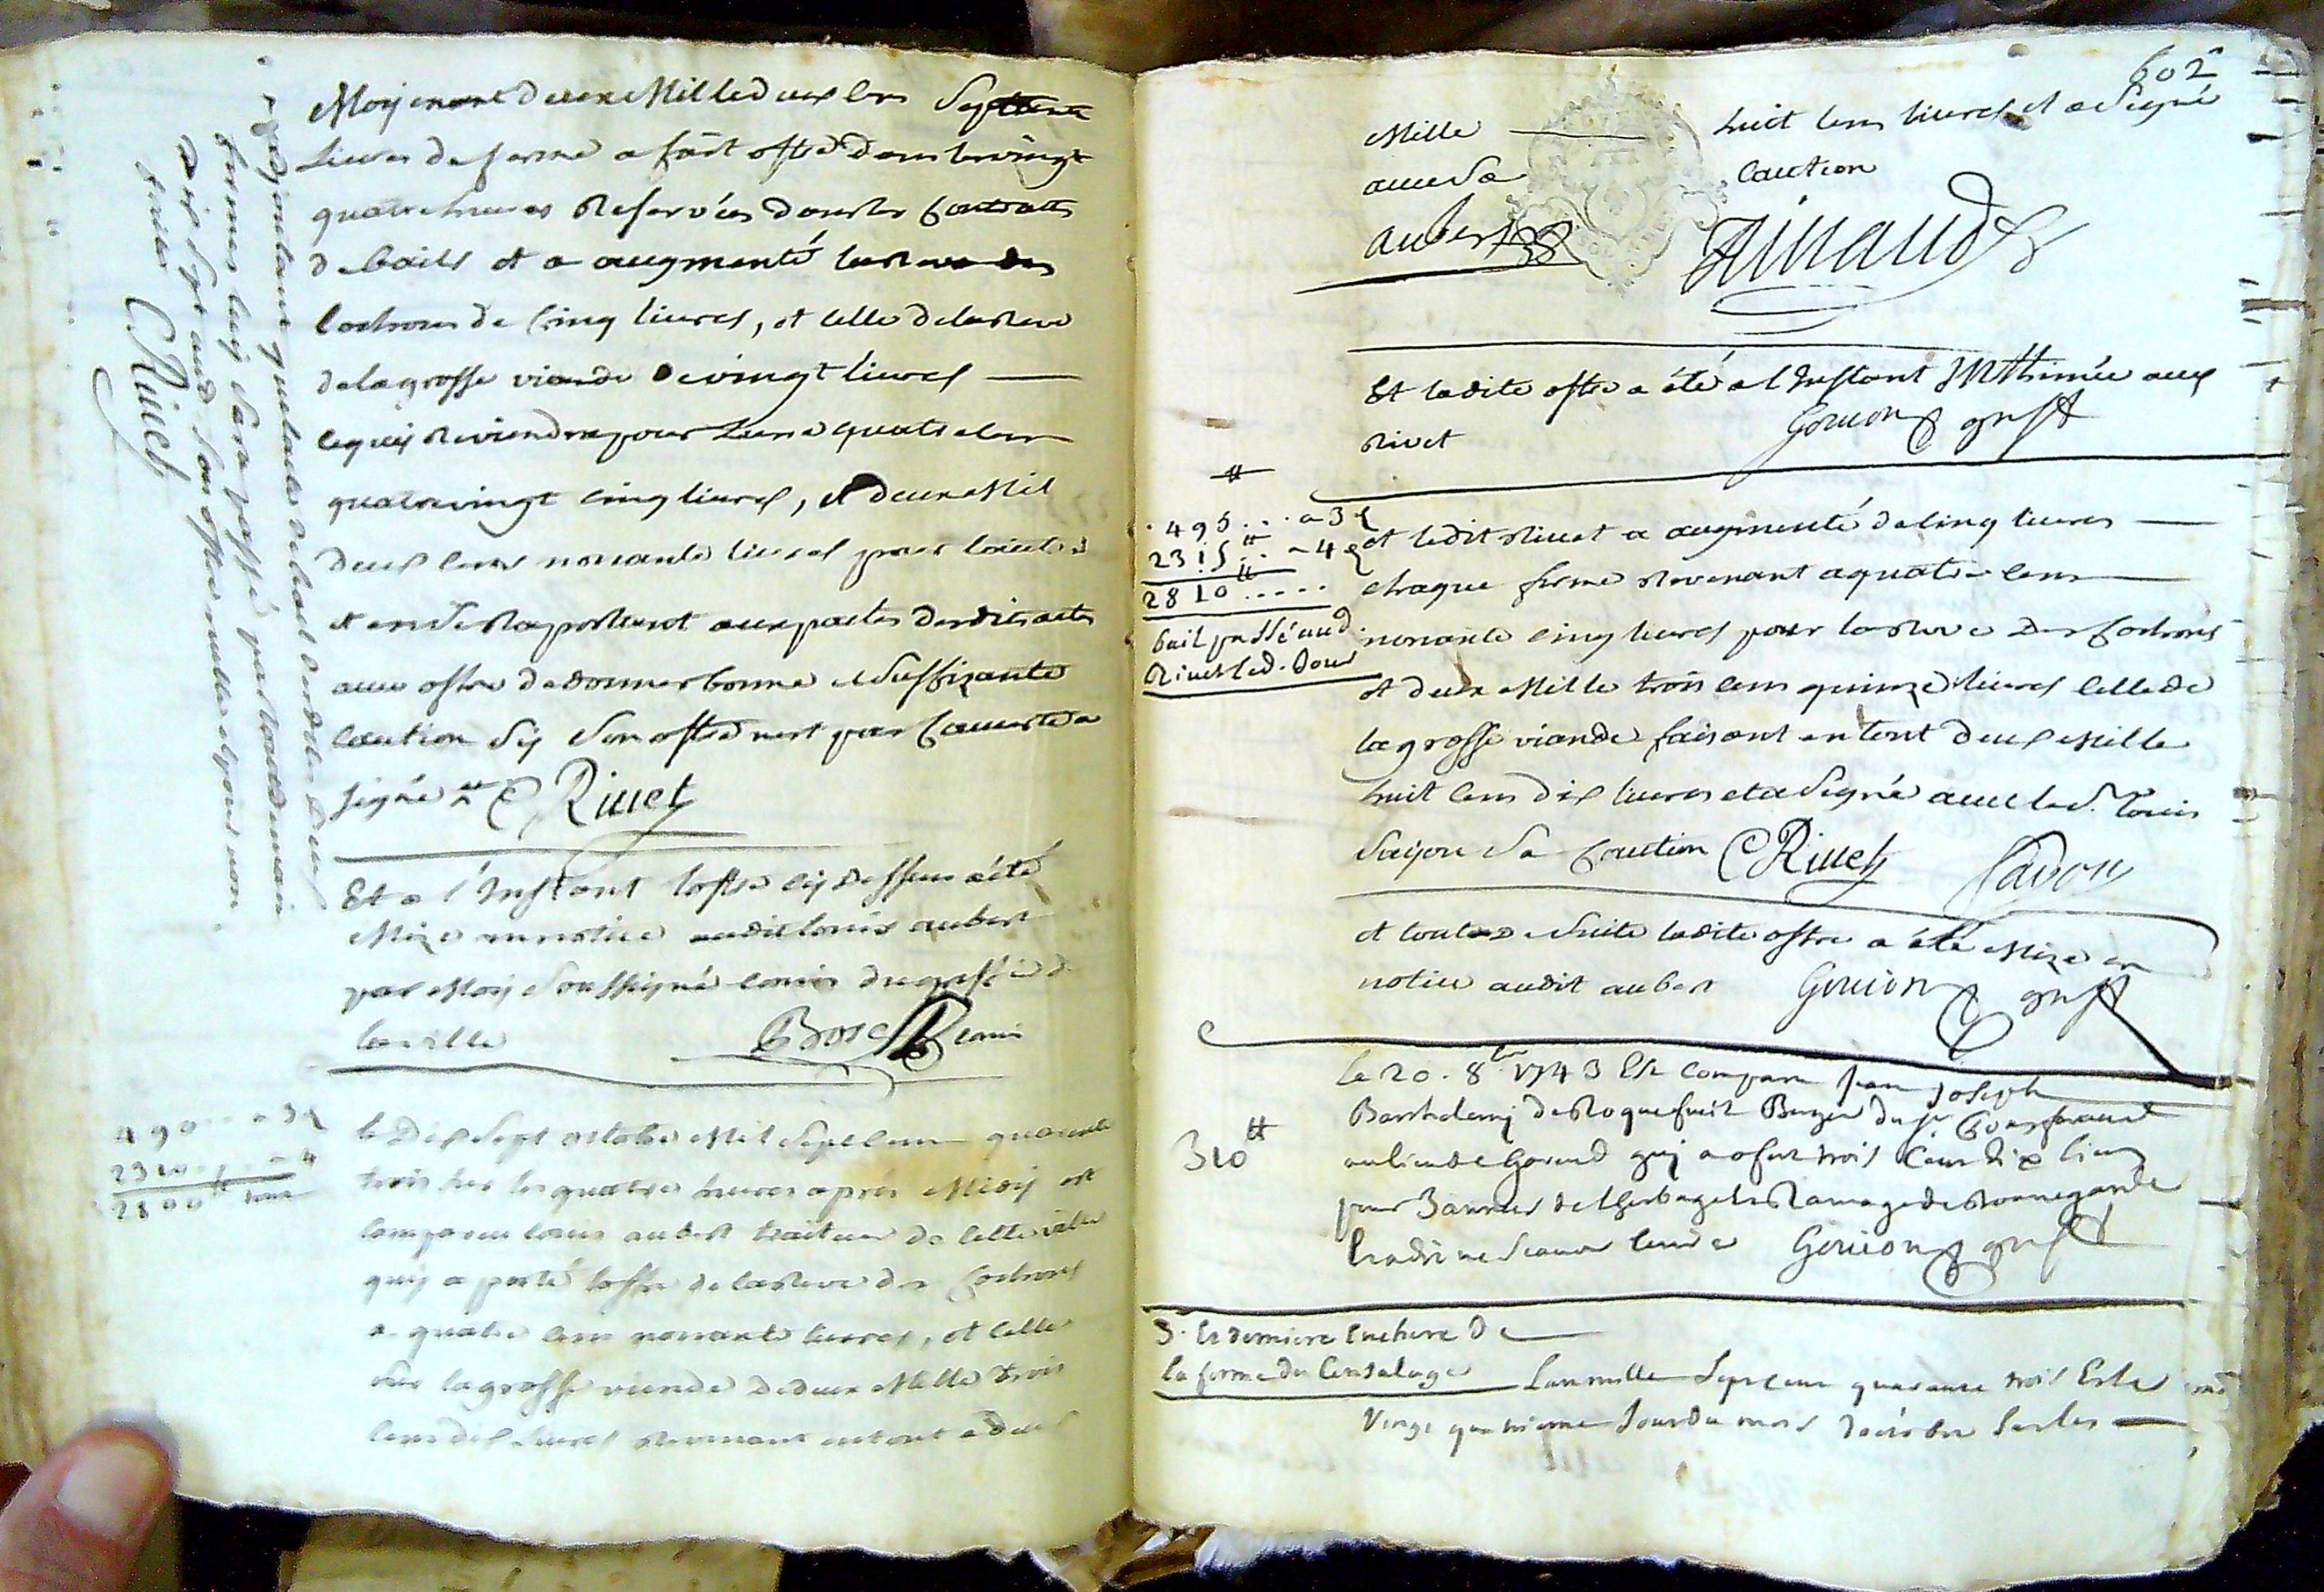 Moyenant deux Mille deux cens Septante
Livres de ferme a fait offre dans les vingt
quatre heures Reservées dans les Contratts
de bails et a augmenté la Reve des
Cochons de Cinq livres, et celle de la Reve
de la grosse viande de vingt livres
ce quy Reviendra pour l'une quatre cens
quatrevingt cinq livres, et deux Mil
deux cens nonante livres pour l'autre
et en se Raportant aux pactes desdits actes
avec offre de donner bonne et suffizante
caution sy son offre n'est pas Couverte a
signé C Rivet
Et a l'Instant l'offre cy dessus a été
Mize en notice audit louis aubert
par Moy Soussigné comis du greffe de
la ville Bosc comis
490 .. a 3
2310 .. a 4
2800
le Dix Sept octobre Mil Sept cens quarante
trois sur les quatre heures après Midy est
comparu louis aubert traiteur de cette ville
quy a porté l'offre de la Reve des Cochons
a quatre cens nonante livres, et celle
de la grosse viande de deux Mille trois
cens dix livres Revenant en tout a deux
en adjoutant que
fermes luy sera passé par tout demain
dix sept aud. son offre nulle et pour non
faite C Rivet
602
Mille huit cens livres et a Signé
avec Sa Caution
aubert Ainaud
Et ladite offre a été a l'Instant Inthimée aux
Rivet Gouion greff
495 ... a 3
2315 .. a 4
2810 .....
bail passé aud.
Rivet led. Jour
et ledit Rivet a augmenté de cinq livres
chaque ferme Revenant a quatre cens
nonante cinq livres pour la Reve des Cochons
et deux Mille trois cens quinze livres celle de
la grosse viande faisant en tout deux Mille
huit cens dix livres et a Signé avec le S. Louis
Sa Caution C Rivet Savon
et tout de Suite ladite offre a été Mize en
notice audit aubert Gouion greff
310
le 20. 8bre 1743 Est comparu Jean Joseph
Barthelemy de Roquefueil du Sr
au lieu de quy a ofert trois Cens dix livres
pour 3 années de l'herbage et Ramage de Rouuegarde
Gouion greff
3. et derniere Enchere de
la ferme du Censalage L'an mille Sept cens quarante trois Et le
vingt quatrieme Jour du mois d'octobre Sur les